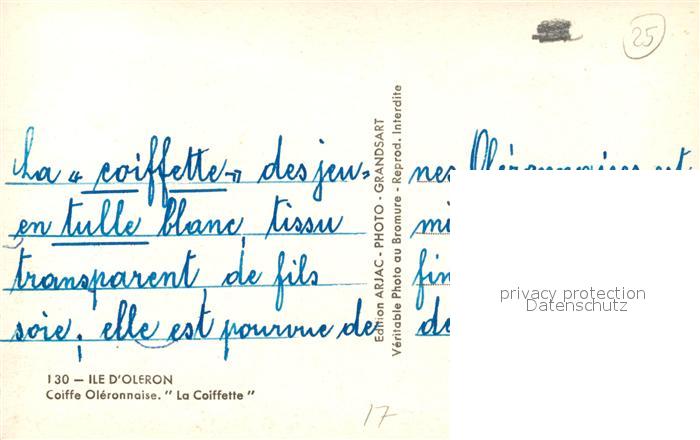 25
La « coiffette » des jeu= nes Oléronnaises est
en tulle blanc, tissu
transparent, de fils fin
soie; elle est pourvue de de
Edition ARJAC - PHOTO - GRANDSART
Véritable Photo au Bromure - Reprod. Interdite
privacy protection
Datenschutz
130 — ILE D'OLERON
Coiffe Oléronnaise. " La Coiffette "
17